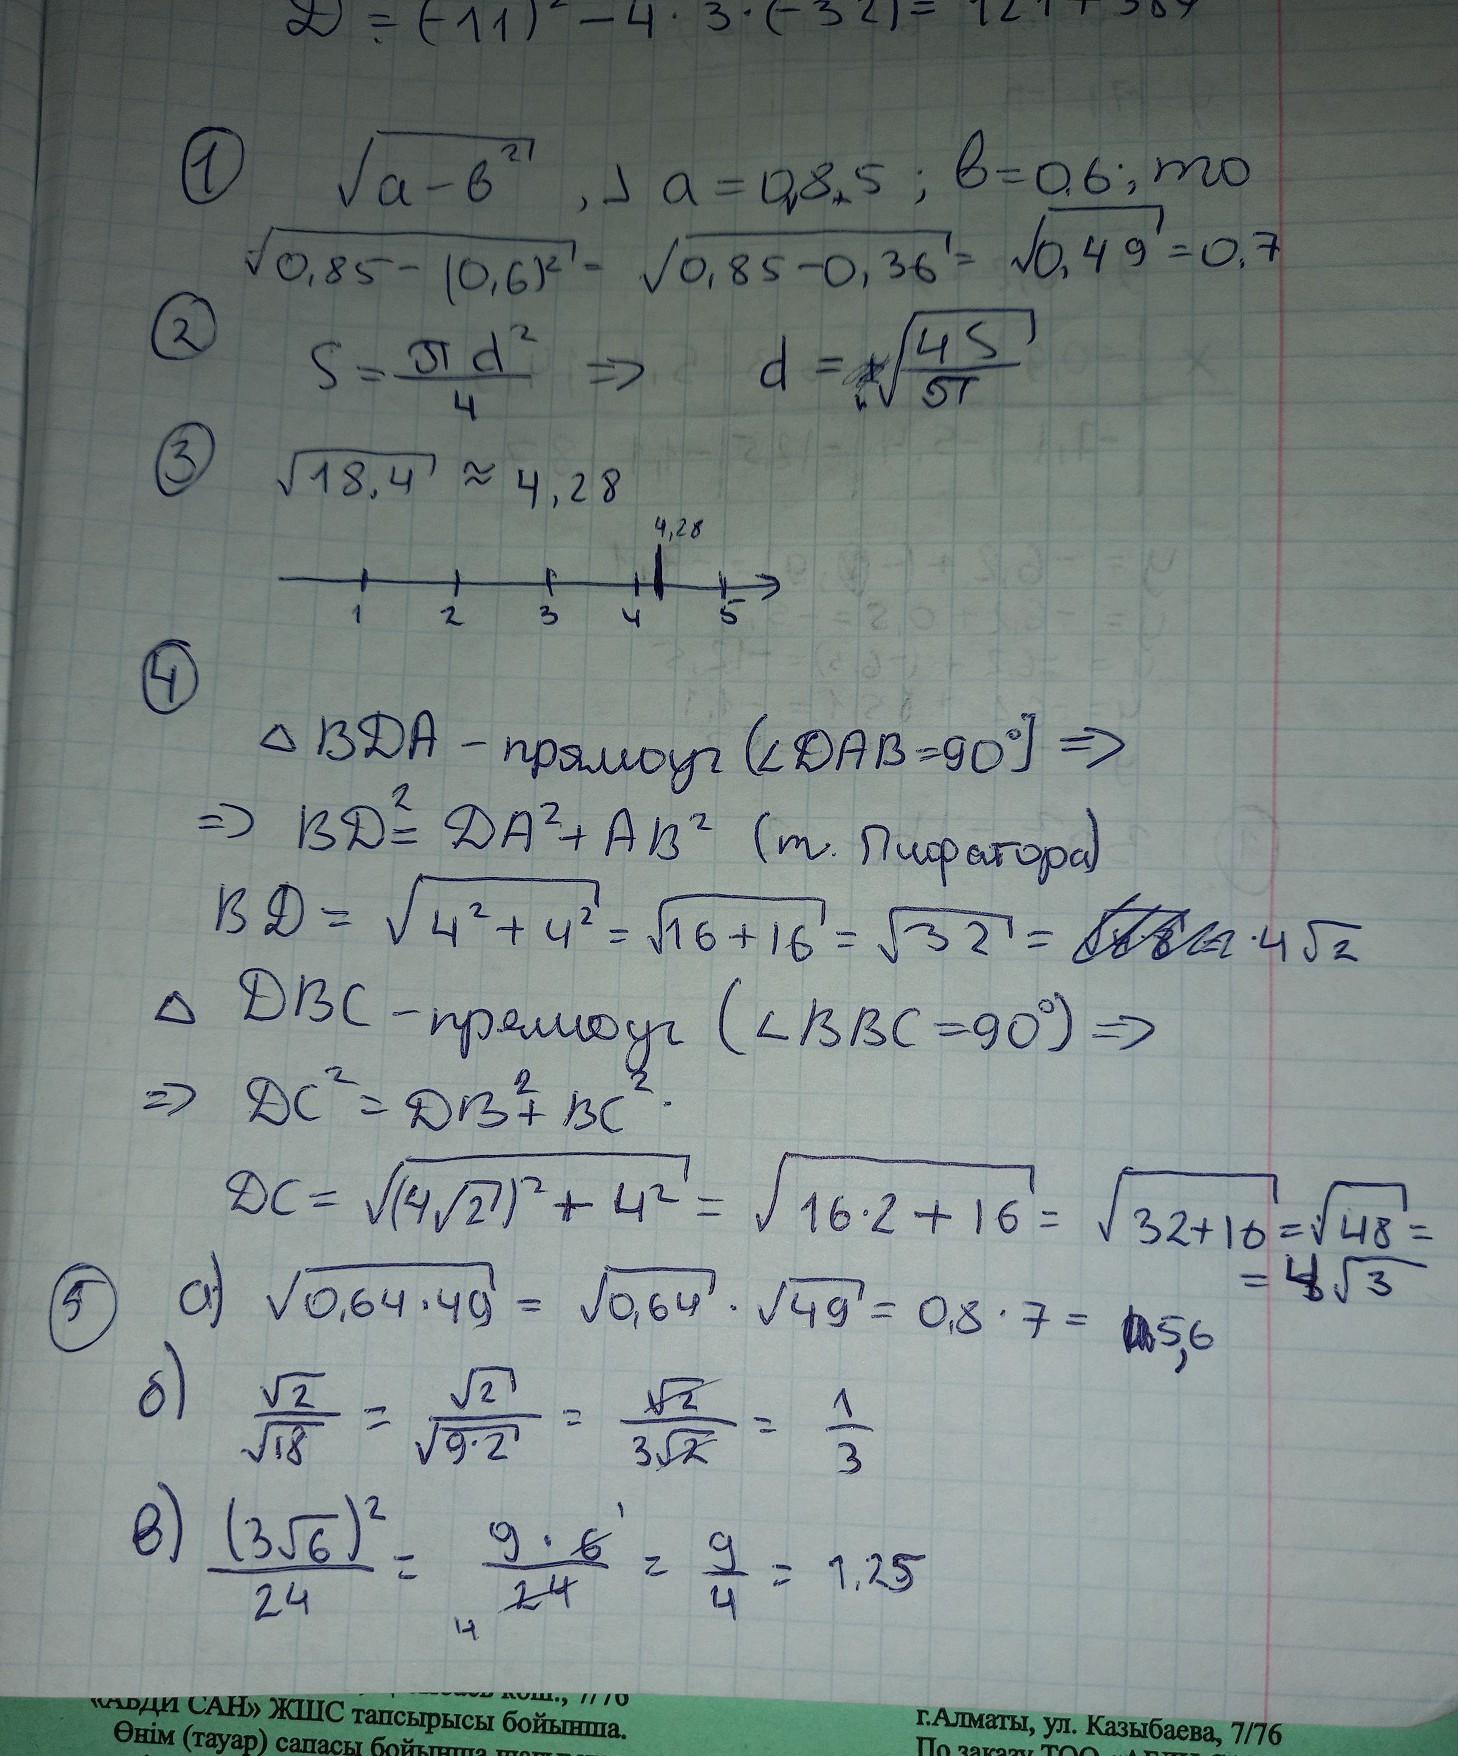 D = (-11)² - 4 · 3 · (-32) = 121 + 384
① √(a - b²), a = 0,85; b = 0,6; то
√(0,85 - (0,6)²) = √(0,85 - 0,36) = √0,49 = 0,7
② S = πd²/4 => d = √(4S/π)
③ √18,4 ≈ 4,28
4,28
1 2 3 4 5
④
△ BDA - прямоуг (∠DAB = 90°] =>
=> BD² = DA² + AB² (т. Пифатора)
BD = √(4² + 4²) = √(16 + 16) = √32 = · 4√2
△ DBC - прямоуг (∠BBC = 90°) =>
=> DC² = DB² + BC² ·
DC = √((4√2)² + 4²) = √(16 · 2 + 16) = √(32 + 16) = √48 =
= 4√3
⑤ а) √(0,64 · 49) = √0,64 · √49 = 0,8 · 7 = 5,6
б) √2/√18 = √2/√(9·2) = √2/(3√2) = 1/3
в) (3√6)²/24 = 9 · 6/24 = 9/4 = 1.25
1
4
7/76
«АБДИ САН» ЖШС тапсырысы бойынша.
Өнім (тауар) сапасы бойынша
г.Алматы, ул. Казыбаева, 7/76
По заказу ТОО